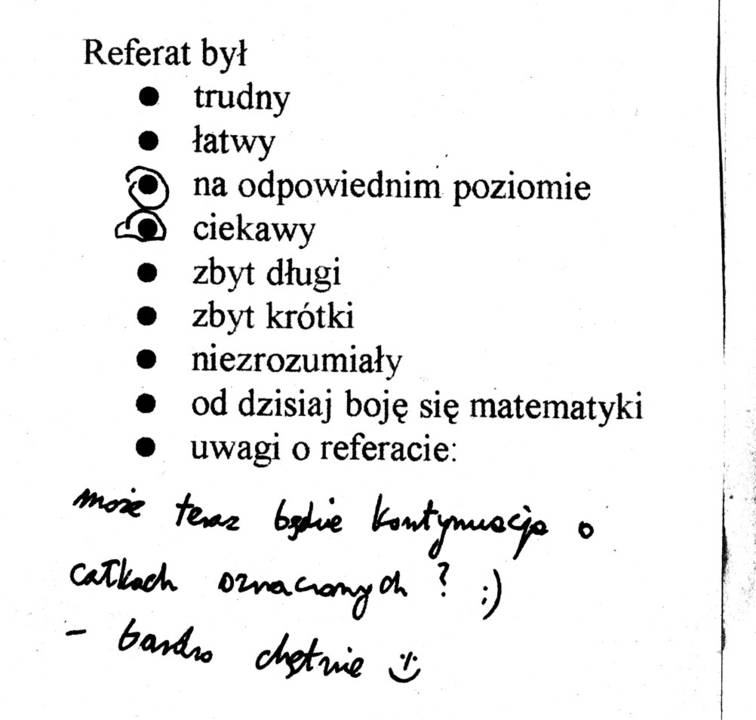 Referat był
● trudny
● łatwy
● na odpowiednim poziomie
● ciekawy
● zbyt długi
● zbyt krótki
● niezrozumiały
● od dzisiaj boję się matematyki
● uwagi o referacie:
może teraz będzie kontynuacja o
całkach oznaczonych ? ;)
- bardzo chętnie :)